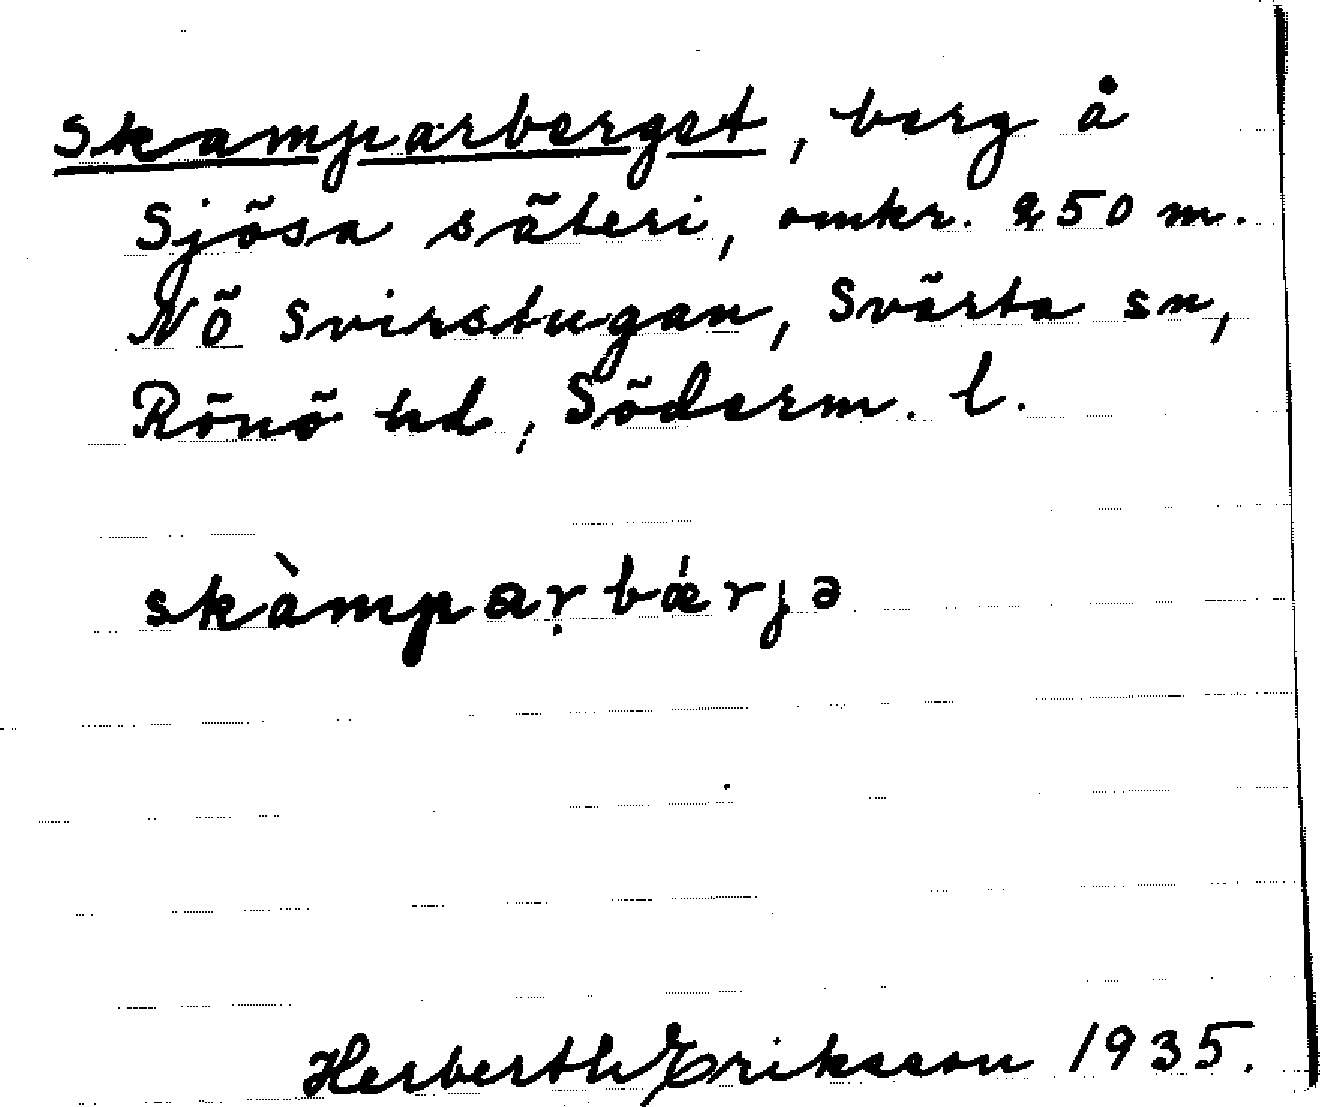 Skamparberget, berg å
Sjösa säteri, omkr. 250 m.
NÖ Svirstugan, Svärta sn,
Rönö hd, Söderm. l.
skàmpaṛbǽrjə
Herberth Eriksson 1935.